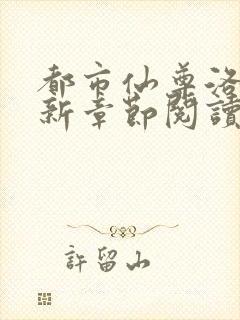 都市仙尊洛
新章節閱讀
許留山